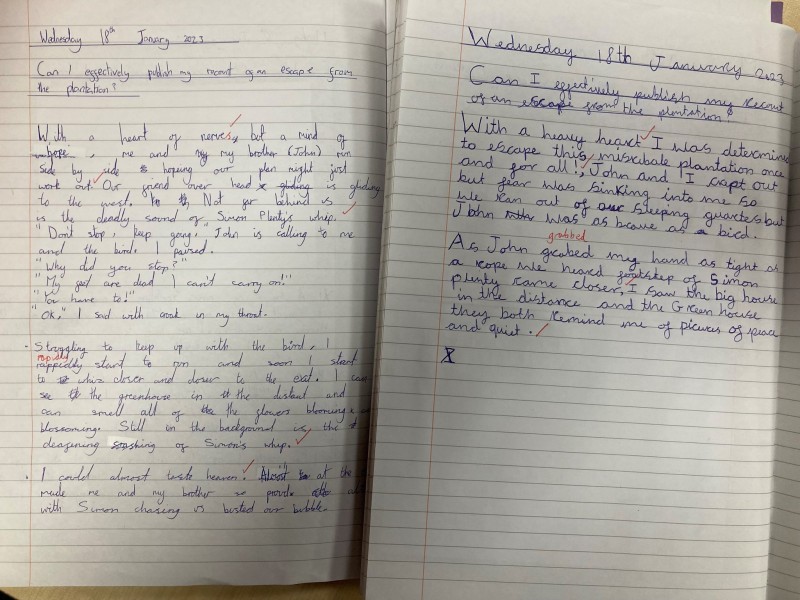 Wednesday 18th Janary 2023
Can I effectively publish my recont of an escape from
the plantation?
With a heart of nerves, but a mind of
hope, me and my my brother (John) run
side by side hoping our plan might just
work out. Our friend over head is gliding
to the west. Not far behind us
is the deadly sound of Simon Plentys whip.
"Don't stop, keep going." John is calling to me
and the bird. I paused.
"Why did you stop?"
"My feet are dead I can't carry on!"
"You have to!"
"Ok," I said with croak in my throat.
Struggling to keep up with the bird, I
rapidly
rappedly start to run and soon I start
to closer and closer to the exit. I can
see the greenhouse in the distant and
can smell all of the flowers blooming
blossoming. Still in the background is, the
deafening of Simon's whip.
I could almost taste heaven. at the
made me and my brother so proud
with Simon chasing us busted our bubble.
Wednesday 18th January 2023
Can I effectively publish my recount
of an escape from the plantation?
With a heavy heart I was determine
to escape this miscrable plantation once
and for all!, John and I crapt out
but fear was sinking into me so
we ran out of our sleeping quarters but
John was as brave as a bird.
grabbed
As John grabed my hand as tight as
a rope we heard footstep of Simon
plenty came closer, I saw the big house
in the distance and the Green house
they both remind me of picures of peace
and quiet.